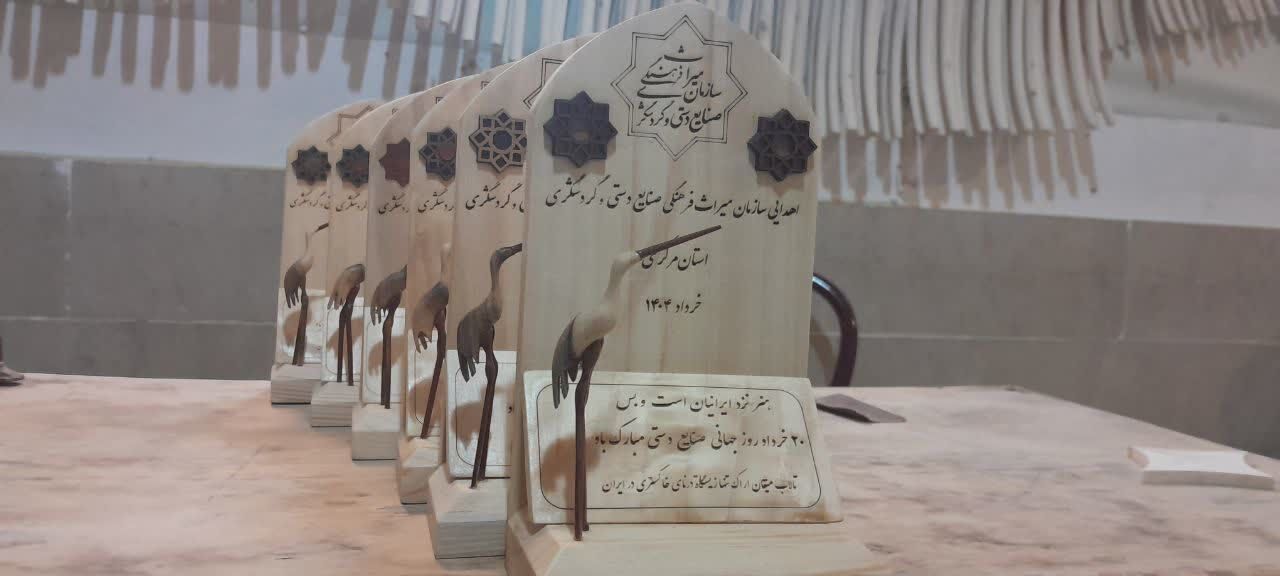 سازمان میراث فرهنگی
صنایع دستی و گردشگری
اهدایی سازمان میراث فرهنگی صنایع دستی و گردشگری
استان مرکزی
خرداد ۱۴۰۴
هنر نزد ایرانیان است و بس
۲۰ خرداد روز جهانی صنایع دستی مبارک باد
تالاب میقان اراک تنها زیستگاه درنای خاکستری در ایران
و گردشگری
گردشگری
گردشگری
گردشگری